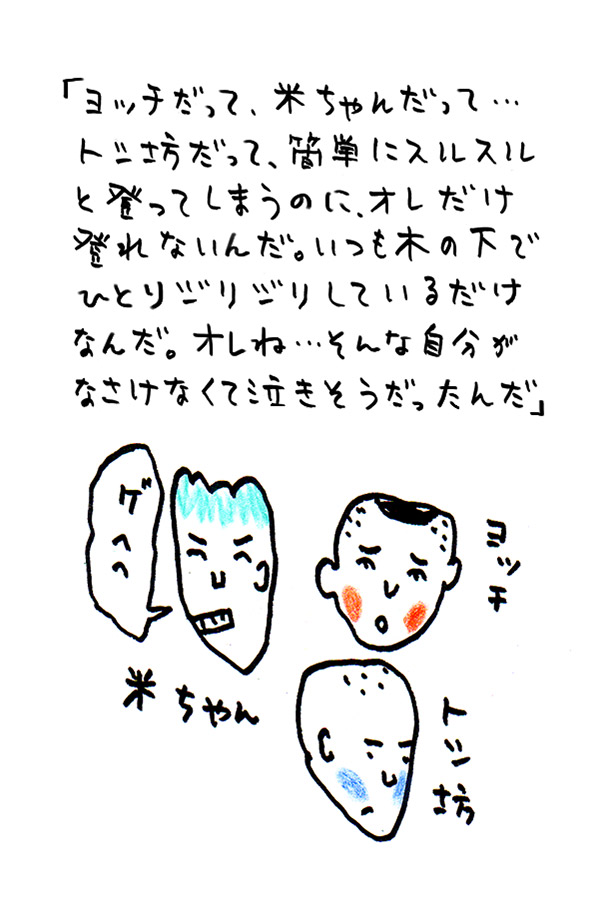 「ヨッチだって、米ちゃんだって…
トシ坊だって、簡単にスルスル
と登ってしまうのに、オレだけ
登れないんだ。いつも木の下で
ひとりジリジリしているだけ
なんだ。オレね…そんな自分が
なさけなくて泣きそうだったんだ」
ゲヘヘ
米ちゃん
ヨッチ
トシ坊